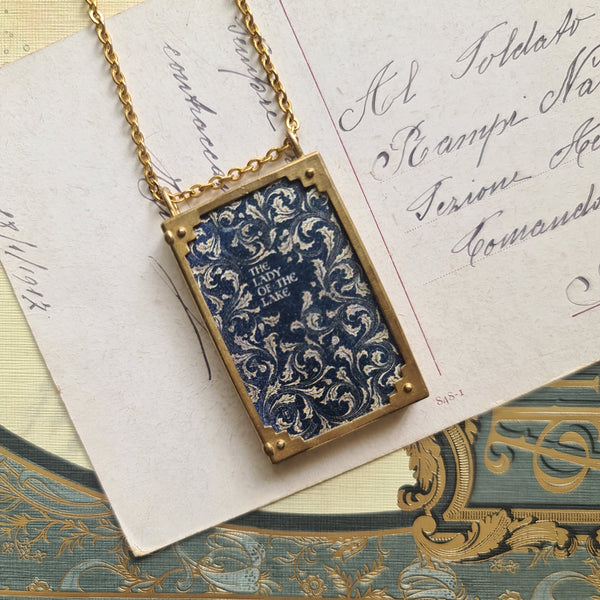 THE
LADY
OF THE
LAKE
Al Soldato
Rampi Na
Sezione
Comando
sempre
848-1